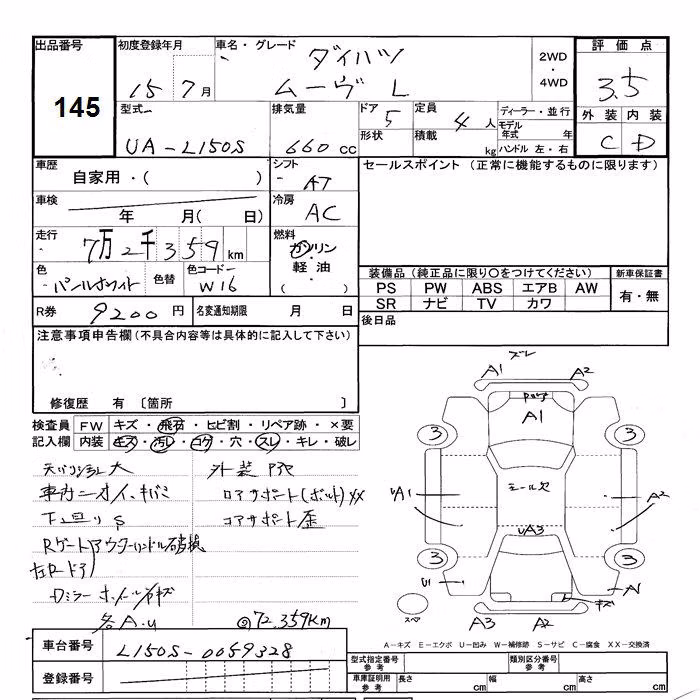 出品番号 初度登録年月 車名・グレード ダイハツ 2WD 評価点
145 15年 7月 ムーヴ L ・4WD 3.5
型式 排気量 ドア 5 定員 ディーラー・並行 外装 内装
UA-L150S 660cc 形状 積載 4人 kg モデル年式 年 ハンドル 左・右 C D
車歴 シフト セールスポイント (正常に機能するものに限ります)
自家用・( ) AT
車検 年 月( 日) 冷房 AC
走行 7万2千359km 燃料 ガソリン
色 色替 色コード 軽油・
パールホワイト W16 ( ) 装備品(純正品に限り○をつけてください) 新車保証書
PS PW ABS エアB AW 有・無
R券 9200円 名変通知期限 月 日 SR ナビ TV カワ
注意事項申告欄(不具合内容等は具体的に記入して下さい) 後日品
修復歴 有 〔箇所 〕
検査員 FW キズ・飛石・ヒビ割・リペア跡・×要
記入欄 内装 キズ・汚レ・コゲ・穴・スレ・キレ・破レ
ズレ
A1 A2
A1
3 3
A1 A2
UA3
3 3
キズ
スペア A3 A2
外装
車内ニオイ
下回りS
Rゲートアウターハンドル破損
各A.U
コアサポート歪
◎72,359km
A-キズ E-エクボ U-凹み W-補修跡 S-サビ C-腐食 XX-交換済
車台番号 L150S-0059328 型式指定番号 参考 類別区分番号 参考
登録番号 車庫証明用 参考 長さ cm 幅 cm 高さ cm